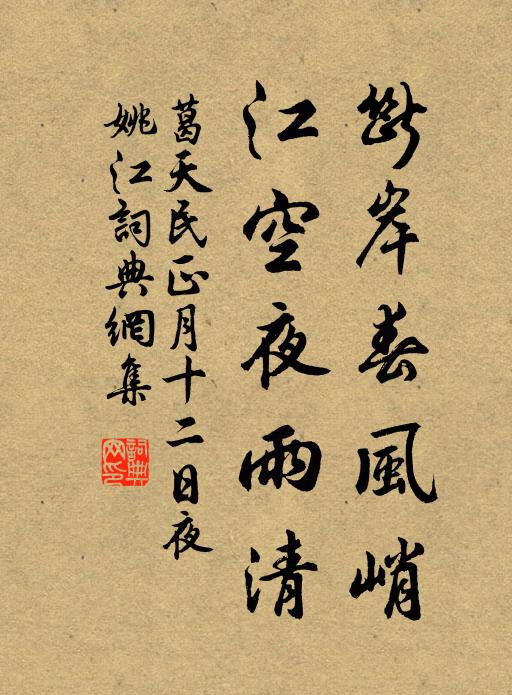 斷岸春風峭
江空夜雨清
葛天民正月十二日夜
姚江詞典網集
詞典
网印